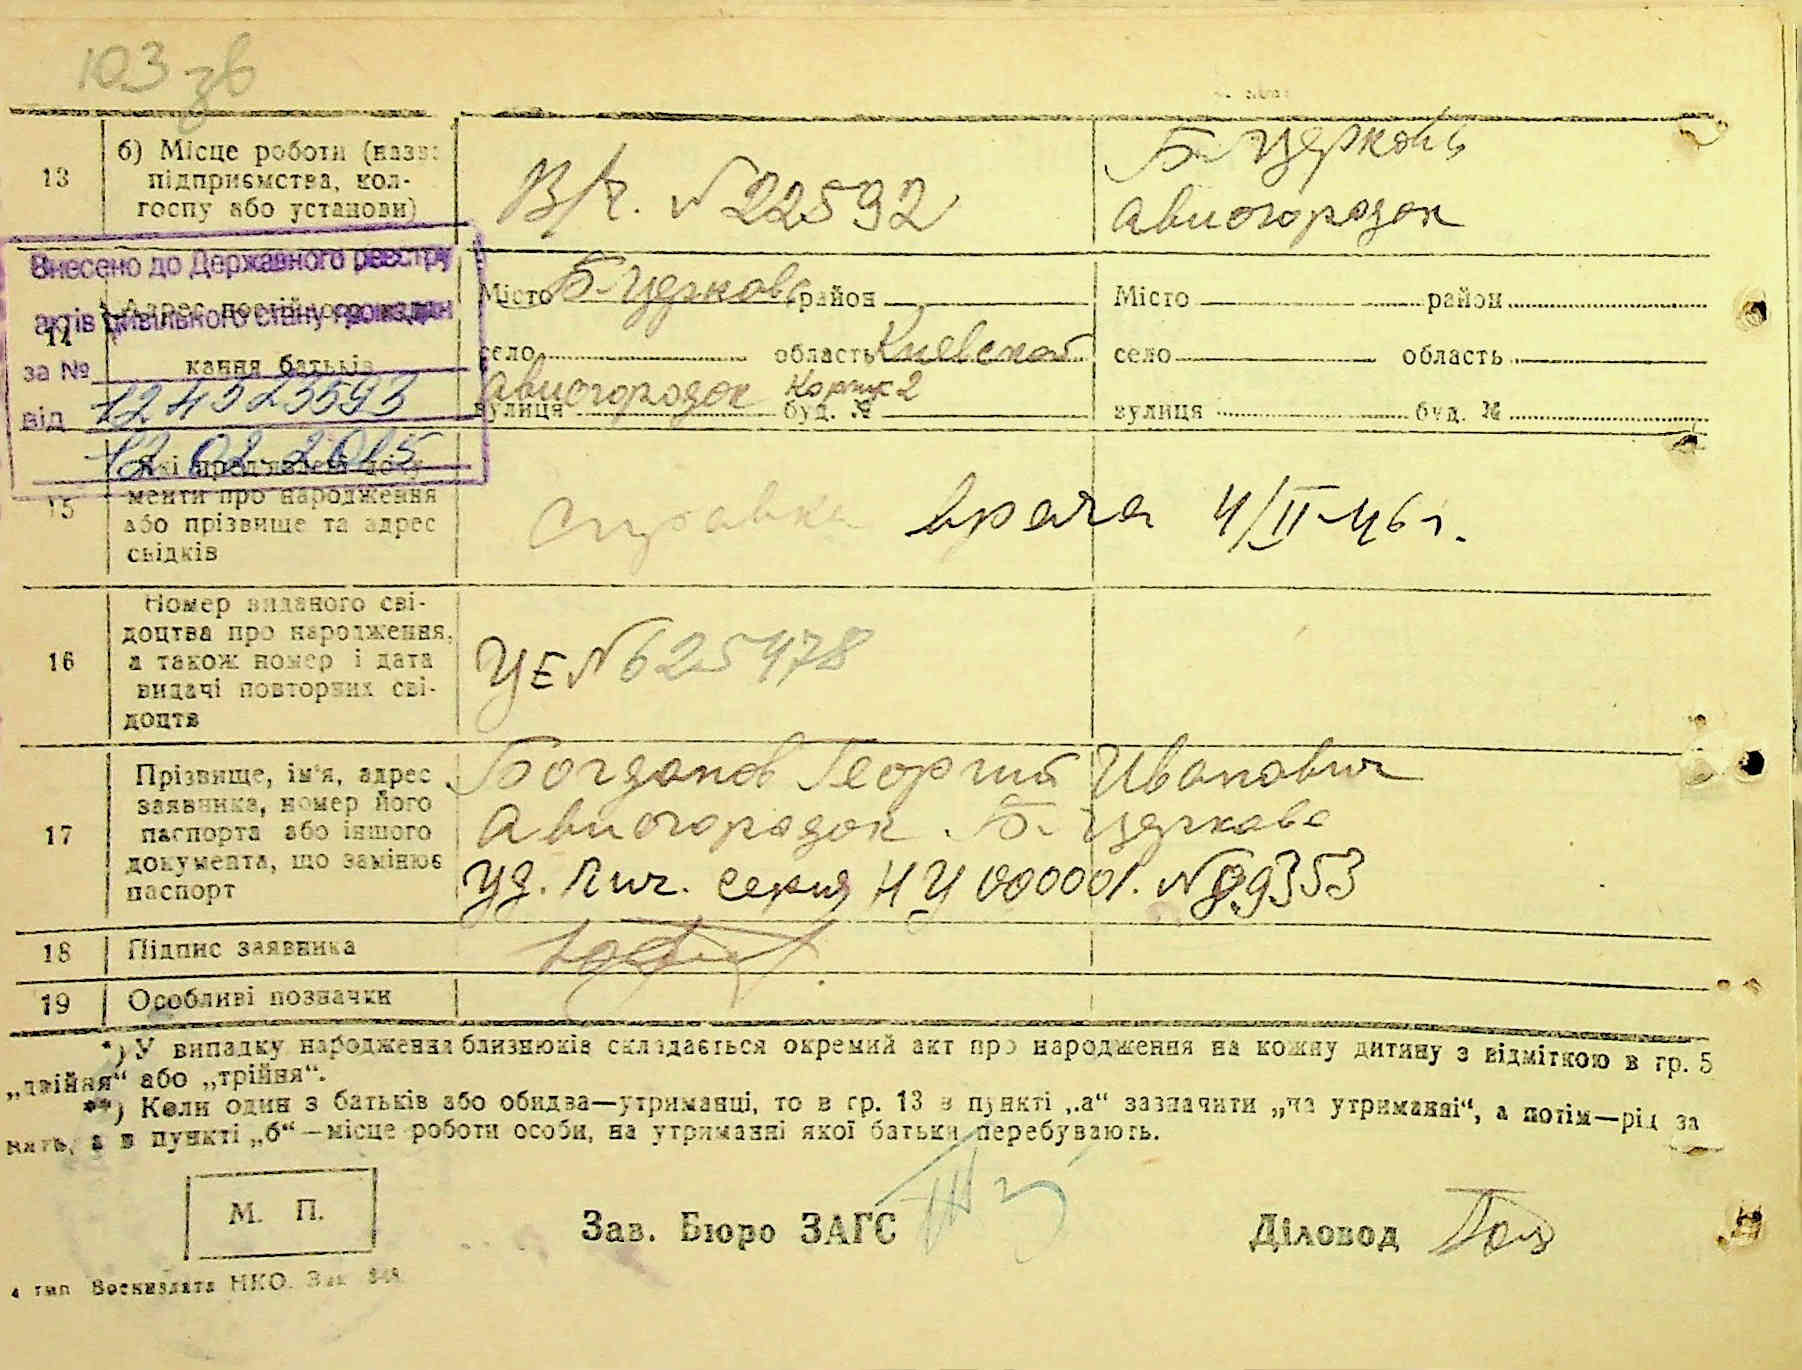 103 зв
13
б) Місце роботи (назва
підприємства, кол-
госпу або установи)
В/ч. №22592
Б-Церковь
авиогородок
Внесено до Державного реєстру
актів цивільного стану громадян
за №
від
12.02.2015
14
кання батьків
Місто Б-Церковь район
село область Киевской
авиогородок Корпус 2
вулиця буд. №
Місто район
село область
вулиця буд. №
15
Які пред'явлені доку-
менти про народження
або прізвище та адрес
свідків
справка врача 4/II-46 г.
16
Номер виданого сві-
доцтва про народження,
а також номер і дата
видачі повторних сві-
доцтв
ЦЕ №625478
17
Прізвище, ім'я, адрес
заявника, номер його
паспорта або іншого
документа, що замінює
паспорт
Богданов Георгий Иванович
авиогородок. Б-Церковь
Уд. Лич. серия НЦ 000001. №99353
18
Підпис заявника
19
Особливі позначки
*) У випадку народження близнюків складається окремий акт про народження на кожну дитину з відміткою в гр. 5
„двійня“ або „трійня“.
**) Коли один з батьків або обидва—утриманці, то в гр. 13 в пункті „а“ зазначити „на утриманні“, а потім—рід за
нять, а в пункті „б“—місце роботи особи, на утриманні якої батьки перебувають.
М. П.
Зав. Бюро ЗАГС
Діловод
4 тип Воениздата НКО. Зак 348